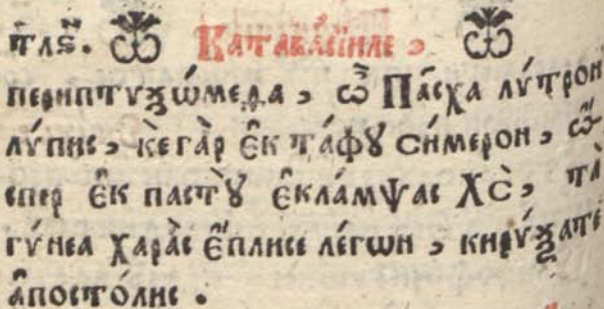 тл҃ѕ. Катава́сїиле ,
периптѷѯѡ́меда , ѽ Па́сха лѵ́трон
лѵ́пис , кѐ га̀р ε҆к та́фꙋ си́мерон , ѡ҆́-
спер ε҆к пастꙋ̀ ε҆кла́мѱас Хс̀ , та̀
гѵ́неа хара̀с ε҆́плисе ле́гѡн , кирѵ́ѯате
а҆посто́лис .